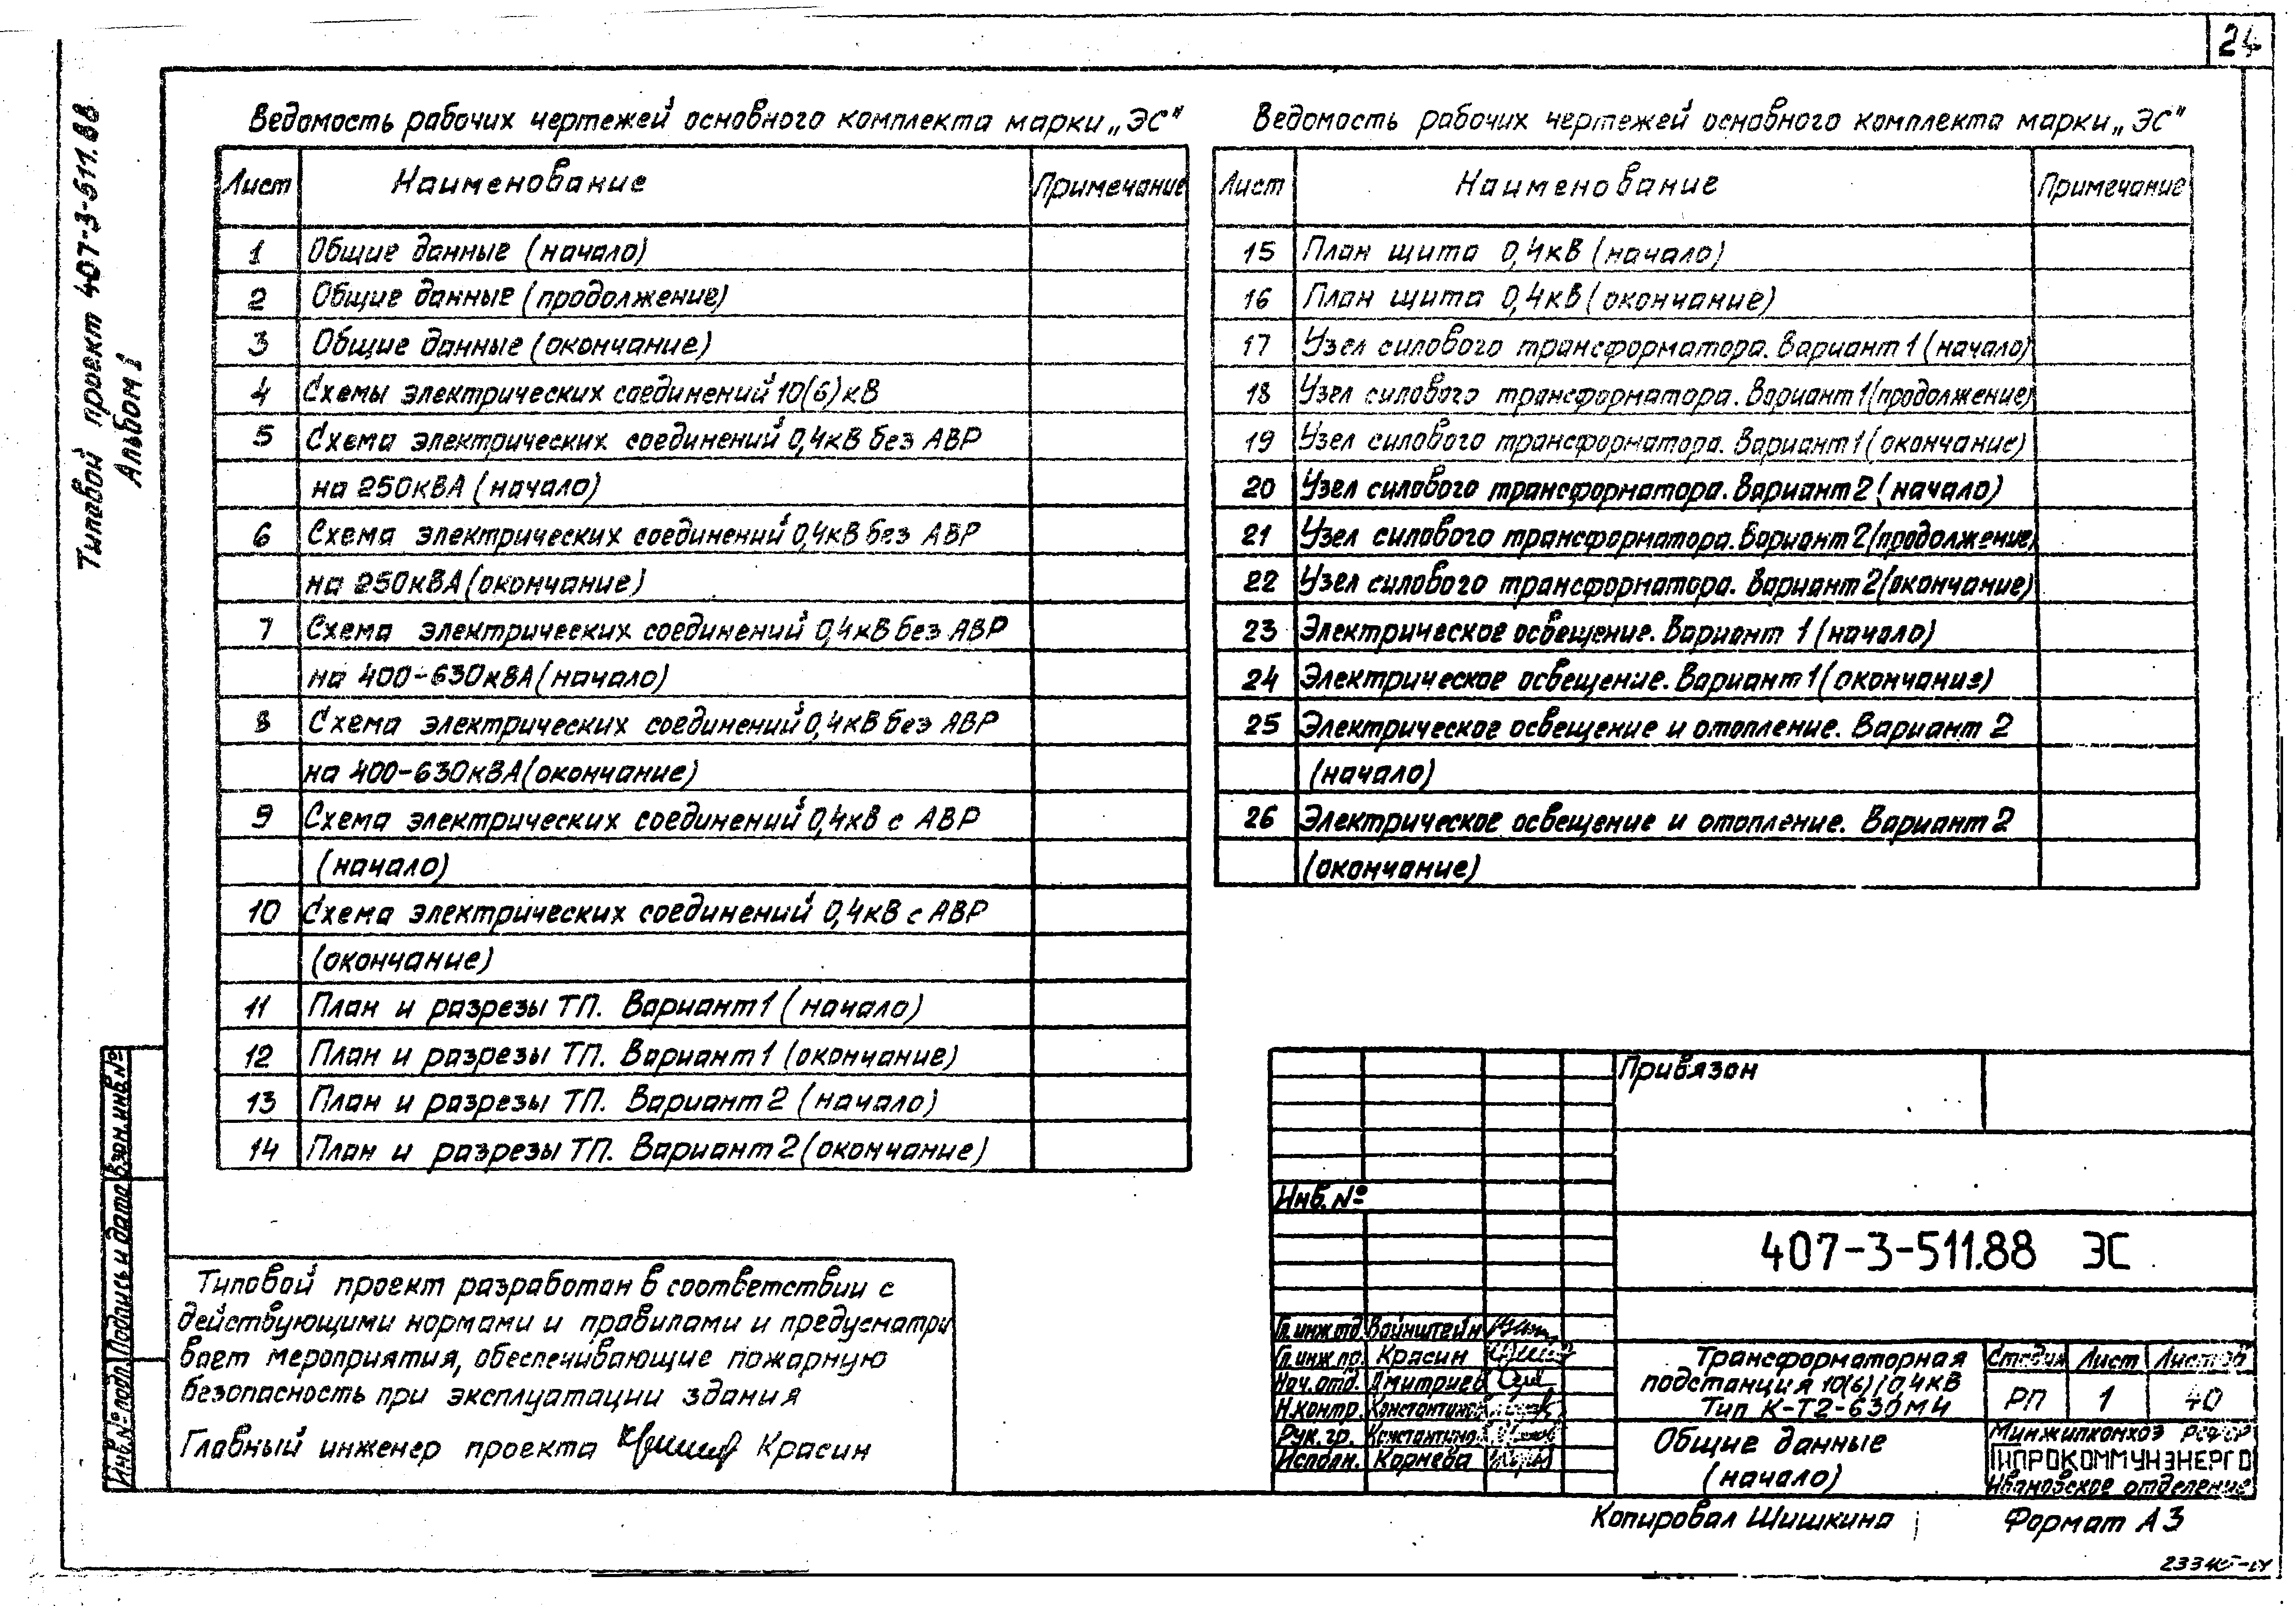 24
Типовой проект 407-3-511.88
Альбом 1
Ведомость рабочих чертежей основного комплекта марки „ЭС"
Лист Наименование Примечание
1 Общие данные (начало)
2 Общие данные (продолжение)
3 Общие данные (окончание)
4 Схемы электрических соединений 10(6)кВ
5 Схема электрических соединений 0,4кВ без АВР
на 250кВА (начало)
6 Схема электрических соединений 0,4кВ без АВР
на 250кВА (окончание)
7 Схема электрических соединений 0,4кВ без АВР
на 400-630кВА (начало)
8 Схема электрических соединений 0,4кВ без АВР
на 400-630кВА (окончание)
9 Схема электрических соединений 0,4кВ с АВР
(начало)
10 Схема электрических соединений 0,4кВ с АВР
(окончание)
11 План и разрезы ТП. Вариант 1 (начало)
12 План и разрезы ТП. Вариант 1 (окончание)
13 План и разрезы ТП. Вариант 2 (начало)
14 План и разрезы ТП. Вариант 2 (окончание)
Ведомость рабочих чертежей основного комплекта марки „ЭС"
Лист Наименование Примечание
15 План щита 0,4кВ (начало)
16 План щита 0,4кВ (окончание)
17 Узел силового трансформатора. Вариант 1 (начало)
18 Узел силового трансформатора. Вариант 1 (продолжение)
19 Узел силового трансформатора. Вариант 1 (окончание)
20 Узел силового трансформатора. Вариант 2 (начало)
21 Узел силового трансформатора. Вариант 2 (продолжение)
22 Узел силового трансформатора. Вариант 2 (окончание)
23 Электрическое освещение. Вариант 1 (начало)
24 Электрическое освещение. Вариант 1 (окончание)
25 Электрическое освещение и отопление. Вариант 2
(начало)
26 Электрическое освещение и отопление. Вариант 2
(окончание)
Типовой проект разработан в соответствии с
действующими нормами и правилами и предусматри
вает мероприятия, обеспечивающие пожарную
безопасность при эксплуатации здания
Главный инженер проекта Красин
Инв.№ подл. Подпись и дата Взам.инв.№
Привязан
Инв.№
407-3-511.88 ЭС
Гл.инж.отд. Вайнштейн
Гл.инж.пр. Красин
Нач.отд. Дмитриев
Н.контр. Константинов
Рук.гр. Константинов
Исполн. Корнева
Трансформаторная
подстанция 10(6)/0,4кВ
Тип К-Т2-630М4
Стадия Лист Листов
РП 1 40
Общие данные
(начало)
Минжилкомхоз РСФСР
ГИПРОКОММУНЭНЕРГО
Ивановское отделение
Копировал Шишкина
Формат А3